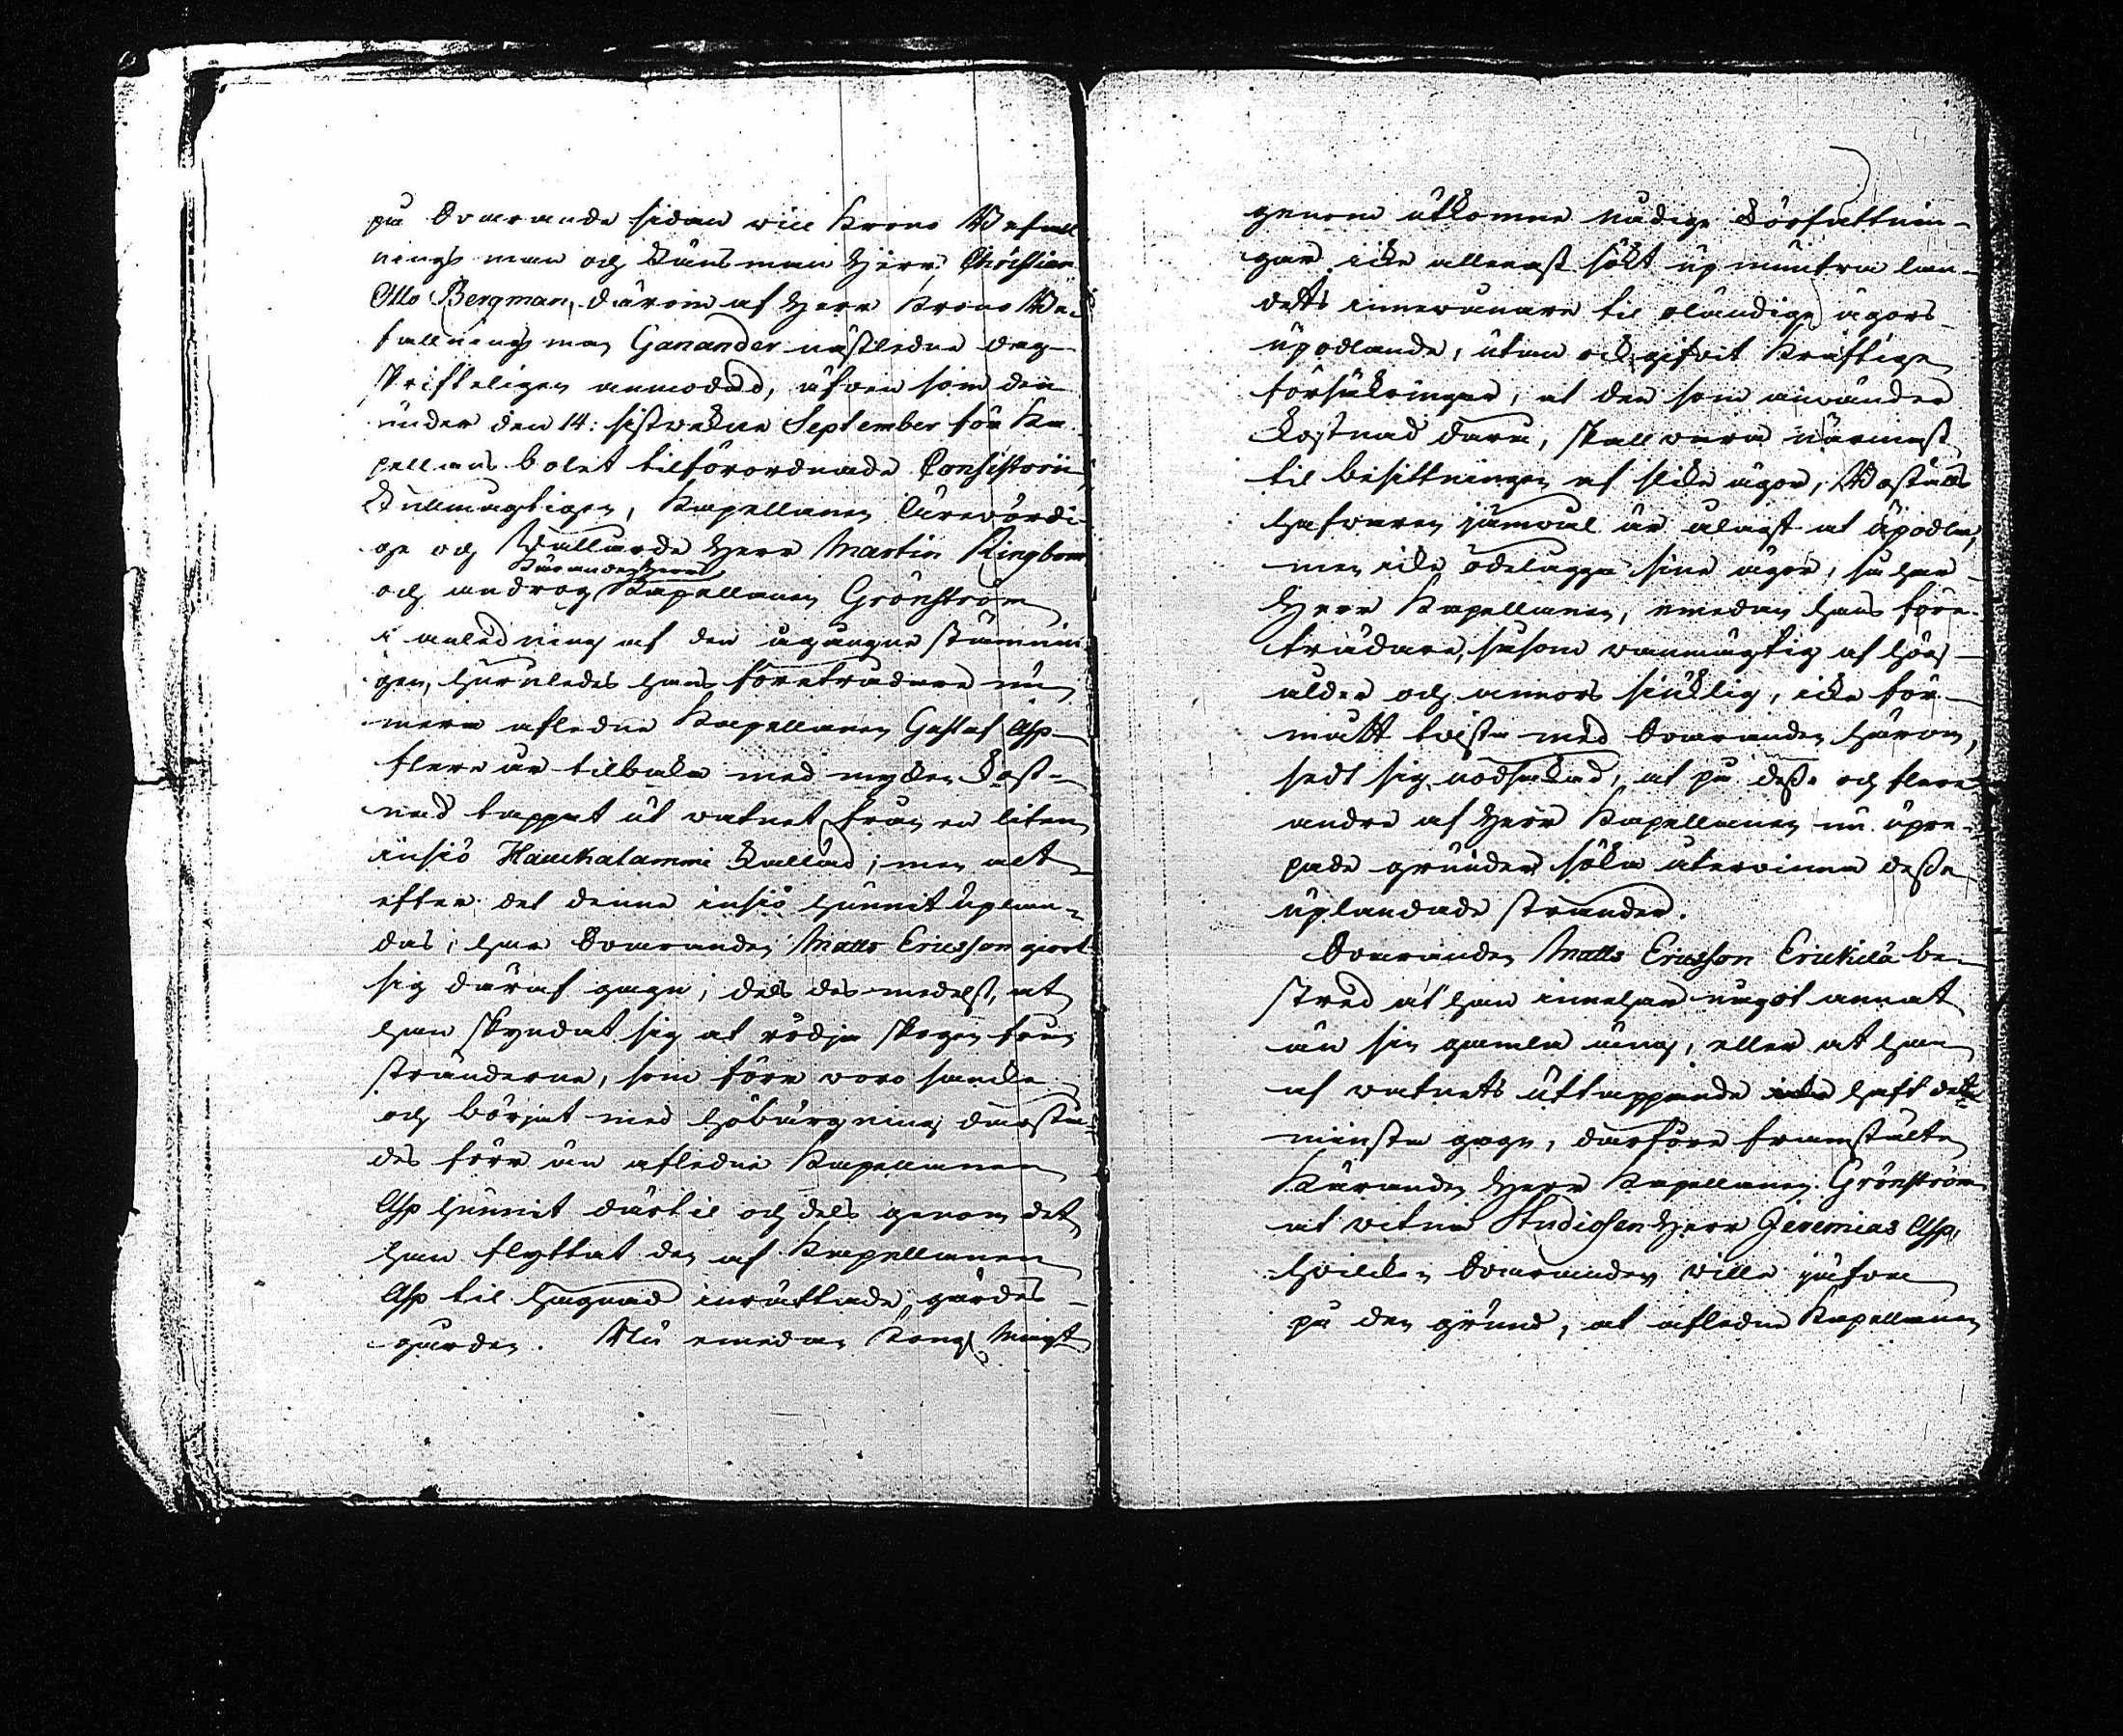 på Svarande sidan vice Krono Befall
nings man och Länsman Herr Christian
Otto Bergman, därom af Herr Krono Be-
fallnings man Ganander nästledne dag
skrifteligen anmodad, äfven som den
under den 14: sistvekne September för Ka-
pellans bolet tilförordnade Consistorii
Fullmägtigen, Kapellanen Ärevördi-
ge och Wällärde Herr Martin Ringbom
och androg Käranden Herr Kapellanen Grönström
i anledning af den ågångne stämnin-
gen, huruledes hans företrädare nu
mera afledne Kapellanen Gustaf Asp
flere år tilbaka med mycken kost-
nad tappat ut vatnet från en liten
insiö Haukalammi kallad; men alt
efter det denne insiö hunnit uplan-
das, har Svaranden Matts Ericsson giort
sig däraf gagn; dels des medelst, at
han skyndat sig at rödja skogen från
stränderne, som förr voro sanke
och börjat med höbärgning därstä-
des förr än aflidne Kapellanen
Asp hunnit därtil och dels genom det
han flyttat den af Kapellanen
Asp til hägnad inrättade gärdes-
gården. Nu emedan Kongl Maijt
genom utkomne nådige författnin-
gar icke allenast sökt upmuntra lan-
dets innevånare til oländige ägors
upodlande, utan ock gifvit kraftige
försäkringar, at den som använder
kostnad dara, skall vara närmast
til besittningen af slike ägor, Boställs
hafvaren jämväl är ålagt at upodla,
men icke ödelägga sine ägor, så har
Herr Kapellanen, emedan hans före-
trädare, såsom vanmägtig af hög
ålder och annors siuklig, icke för-
mått tvista med Svaranden härom,
sedt sig nödsakad, at på desse och flere
andre af Herr Kapellanen nu upre-
pade grunder söka återvinna desse
uplandade stränder.
Svaranden Matts Ericsson Erickilä be-
stred at han innehar något annat
än sin gamla äng, eller at han
af vatnets uttappande haft det
minsta gagn, därföre framstälte
Käranden Herr Kapellanen Grönström
at vitna Studiosen Herr Jeremias Asp,
hvilken Svaranden ville jäfva
på den grund, at aflidne Kapellanen